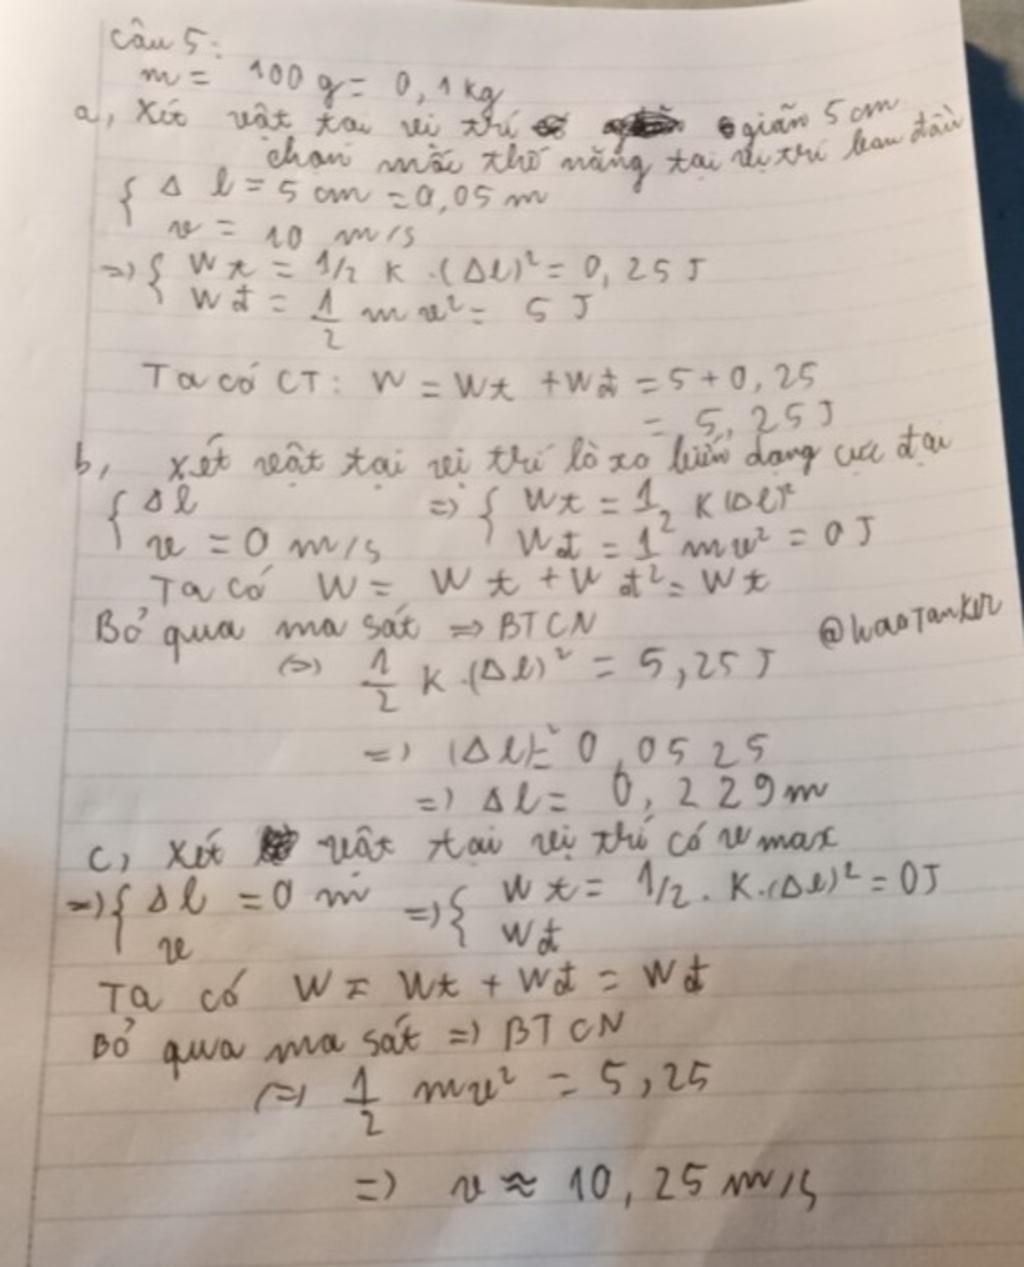 Câu 5:
m = 100 g = 0,1 kg
a, Xét vật tại vị trí giãn 5 cm
chọn mốc thế năng tại vị trí ban đầu
{ Δl = 5 cm = 0,05 m
v = 10 m/s
=> { Wt = 1/2 K.(Δl)² = 0,25 J
Wđ = 1/2 mv² = 5 J
Ta có CT: W = Wt + Wđ = 5 + 0,25
= 5,25 J
b, xét vật tại vị trí lò xo biến dạng cực đại
{ Δl => { Wt = 1/2 K(Δl)²
v = 0 m/s Wđ = 1/2 mv² = 0 J
Ta có W = Wt + Wđ² = Wt
Bỏ qua ma sát => BTCN
@haoTanker
(=>) 1/2 K.(Δl)² = 5,25 J
=> (Δl)² = 0,0525
=> Δl = 0,229 m
c, Xét vật tại vị trí có v max
=> { Δl = 0 m => { Wt = 1/2.K.(Δl)² = 0 J
v Wđ
Ta có W = Wt + Wđ = Wđ
Bỏ qua ma sát => BTCN
(=>) 1/2 mv² = 5,25
=> v ≈ 10,25 m/s